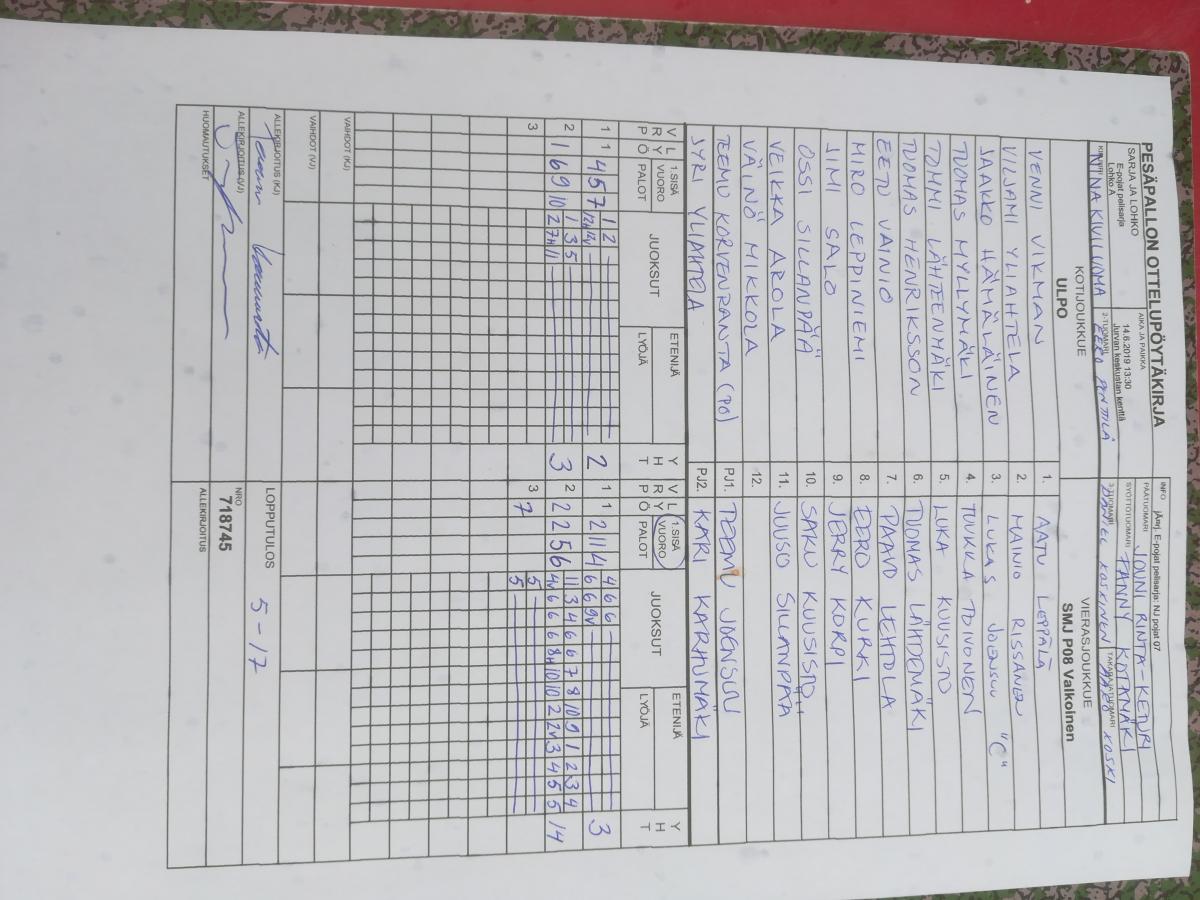 PESÄPALLON OTTELUPÖYTÄKIRJA
SARJA JA LOHKO
E-pojat pelisarja
Lohko A
AIKA JA PAIKKA
14.6.2019 13:30
Jurvan keskustan kenttä
INFO
jÄrrj. E-pojat pelisarja: NJ pojat 07
PÄÄTUOMARI
JOUNI RINTA-KEDURI
SYÖTTÖTUOMARI
FANNY KOTAMÄKI
KIRJURI
NINA KIVILUOMA
2-TUOMARI
EERO PENTTILÄ
3-TUOMARI
DANIEL KOSKINEN
TAKARAJATUOMARI
KOSKI
KOTIJOUKKUE
ULPO
VIERASJOUKKUE
SMJ P08 Valkoinen
VENNI VIKMAN 1. AATU LEPPÄLÄ
VILJAMI YLIAHTELA 2. MAINIO RISSANEN
JAAKKO HÄMÄLÄINEN 3. LUKAS JOENSUU "C"
TUOMAS MYLLYMÄKI 4. TUUKKA TOIVONEN
TOMMI LÄHTEENMÄKI 5. LUKA KUUSISTO
TUOMAS HENRIKSSON 6. TUOMAS LÄHDEMÄKI
EETU VAINIO 7. PAAVO LEHTOLA
MIRO LEPPINIEMI 8. EERO KURKI
JIMI SALO 9. JERRY KORPI
OSSI SILLANPÄÄ 10. SAKU KUUSISTO
VEIKKA AROLA 11. JUUSO SILLANPÄÄ
VÄINÖ MIKKOLA 12.
TEEMU KORVENRANTA (PO) PJ1. TEEMU JOENSUU
JYRI YLIAHTELA PJ2. KARI KARHUMÄKI
V L 1.SISÄ JUOKSUT ETENIJÄ Y V L 1.SISÄ JUOKSUT ETENIJÄ Y
R Y VUORO H R Y VUORO H
P Ö PALOT LYÖJÄ T P Ö PALOT LYÖJÄ T
1 1 4 5 7 1 2 2 1 1 2 11 4 4 6 6 3
6 6 9V
2 1 6 9 10 1 3 5 3 2 2 2 5 6 11 3 4 6 6 7 8 10 9 1 2 3 4 14
2 7H 11 4V 6 6 6 6 8H 10 10 2 2V 3 4 5 5
3 3 7 5
5
VAIHDOT (KJ)
VAIHDOT (VJ)
ALLEKIRJOITUS (KJ)
LOPPUTULOS 5-17
ALLEKIRJOITUS (VJ)
NRO
718745
HUOMAUTUKSET
ALLEKIRJOITUS